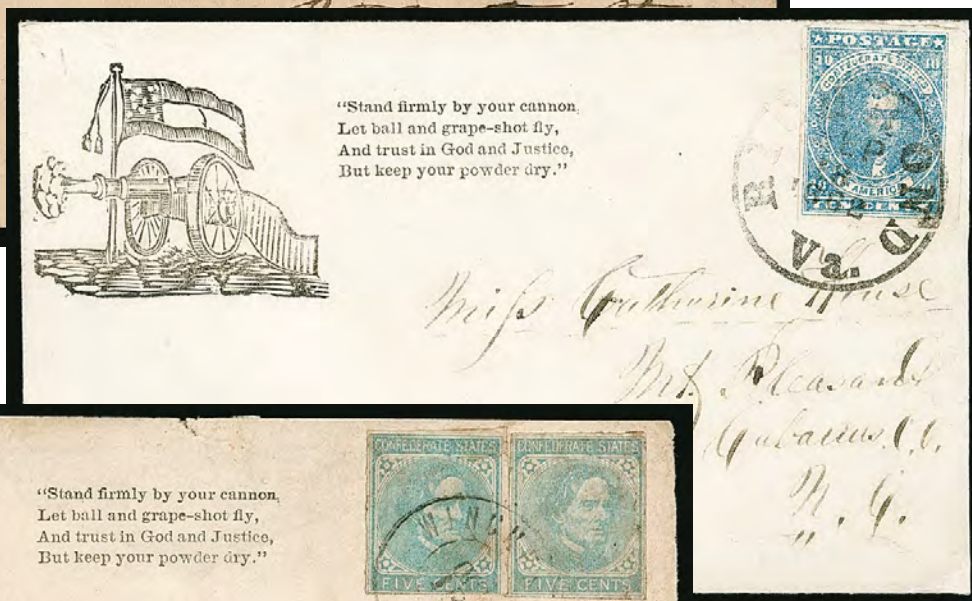 "Stand firmly by your cannon,
Let ball and grape-shot fly,
And trust in God and Justice,
But keep your powder dry."
POSTAGE
10 CONFEDERATE STATES 10
OF AMERICA
TEN CENTS
RICHMOND
SEP
1862
Va.
Miss Catharine House
Mt. Pleasant
Cabarrus Co.
N. C.
"Stand firmly by your cannon,
Let ball and grape-shot fly,
And trust in God and Justice,
But keep your powder dry."
CONFEDERATE STATES
CONFEDERATE STATES
WINCHE
FIVE CENTS
FIVE CENTS